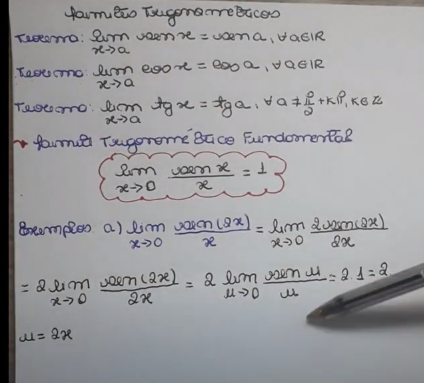 Limites Trigonométricos
Teorema: lim x→a sen x = sen a, ∀a∈IR
Teorema: lim x→a cos x = cos a, ∀a∈IR
Teorema: lim x→a tg x = tg a, ∀a ≠ π/2 + kπ, k∈Z
→ Limite Trigonométrico Fundamental
lim x→0 sen x / x = 1
Exemplos a) lim x→0 sen(2x) / x = lim x→0 2 sen(2x) / 2x
= 2 lim x→0 sen(2x) / 2x = 2 lim u→0 sen u / u = 2.1 = 2
u = 2x